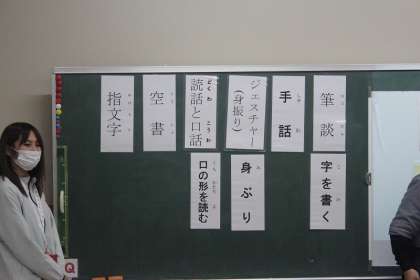 筆談
手話
ジェスチャー
(身振り)
読話と口話
どくわ こうわ
空書
指文字
字を書く
身ぶり
口の形を読む